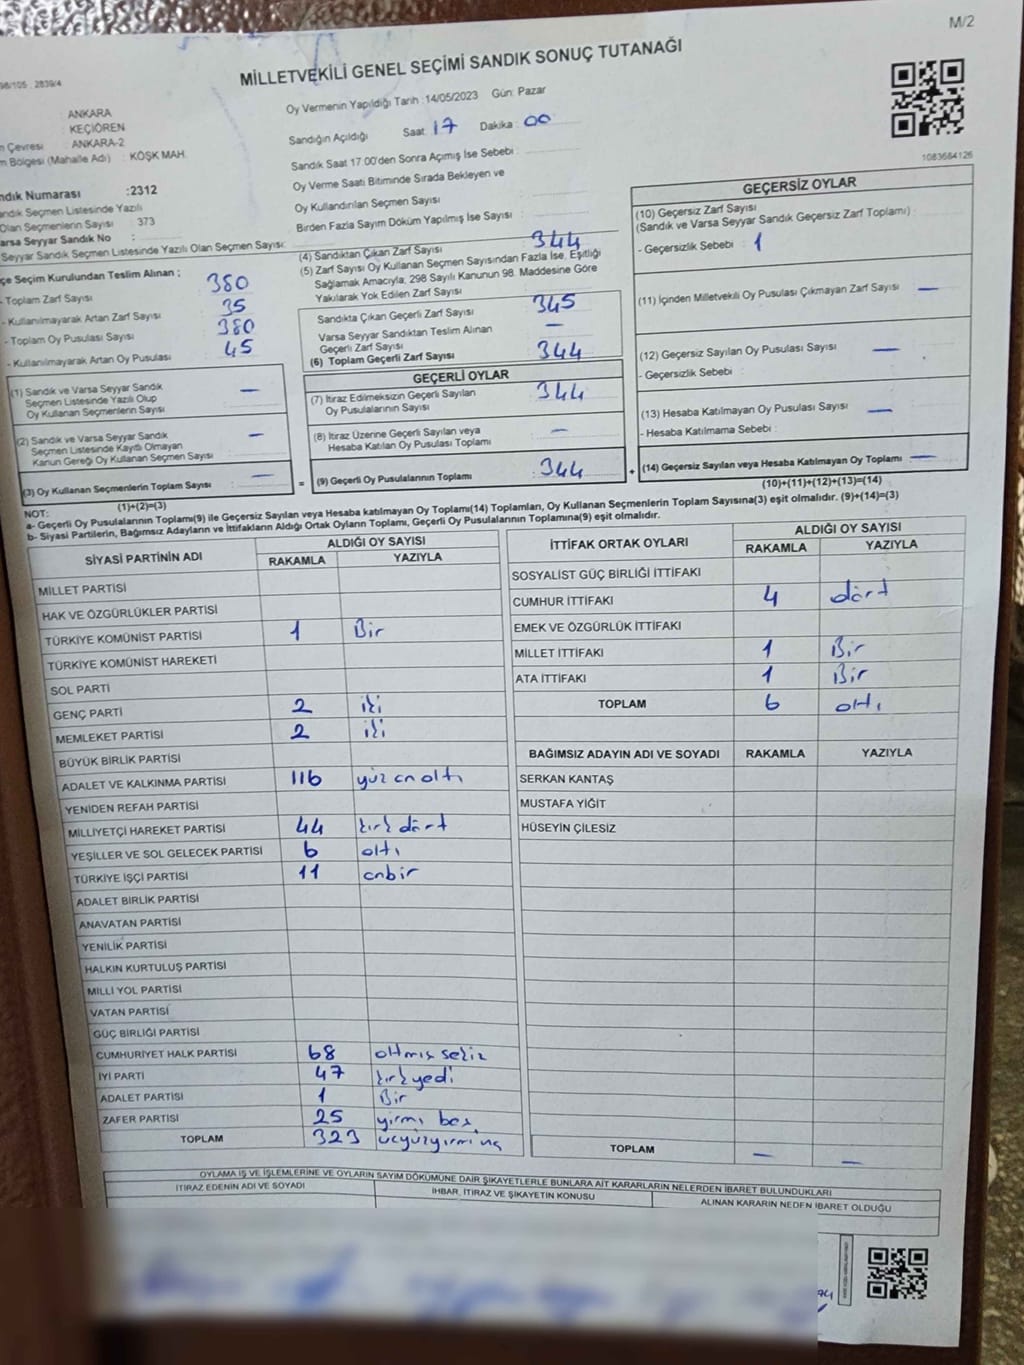 M/2
MİLLETVEKİLİ GENEL SEÇİMİ SANDIK SONUÇ TUTANAĞI
98/105 : 2839/4
ANKARA
KEÇİÖREN
Çevresi : ANKARA-2
Bölgesi (Mahalle Adı) : KÖŞK MAH.
Oy Vermenin Yapıldığı Tarih :14/05/2023 Gün: Pazar
Sandığın Açıldığı Saat: 17 Dakika: 00
Sandık Saat 17.00'den Sonra Açmış İse Sebebi :
Oy Verme Saati Bitiminde Sırada Bekleyen ve
Oy Kullandırılan Seçmen Sayısı :
Birden Fazla Sayım Döküm Yapılmış İse Sayısı :
1083664126
Numarası :2312
Seçmen Listesinde Yazılı
Olan Seçmenlerin Sayısı : 373
Varsa Seyyar Sandık No :
Seyyar Sandık Seçmen Listesinde Yazılı Olan Seçmen Sayısı:
Seçim Kurulundan Teslim Alınan ;
- Toplam Zarf Sayısı 380
- Kullanılmayarak Artan Zarf Sayısı : 35
- Toplam Oy Pusulası Sayısı : 380
- Kullanılmayarak Artan Oy Pusulası : 45
(1) Sandık ve Varsa Seyyar Sandık
Seçmen Listesinde Yazılı Olup
Oy Kullanan Seçmenlerin Sayısı : —
(2) Sandık ve Varsa Seyyar Sandık
Seçmen Listesinde Kayıtlı Olmayan
Kanun Gereği Oy Kullanan Seçmen Sayısı : —
(3) Oy Kullanan Seçmenlerin Toplam Sayısı : —
(1)+(2)=(3)
(4) Sandıktan Çıkan Zarf Sayısı : 344
(5) Zarf Sayısı Oy Kullanan Seçmen Sayısından Fazla İse, Eşitliği
Sağlamak Amacıyla, 298 Sayılı Kanunun 98. Maddesine Göre
Yakılarak Yok Edilen Zarf Sayısı :
Sandıkta Çıkan Geçerli Zarf Sayısı : 345
Varsa Seyyar Sandıktan Teslim Alınan
Geçerli Zarf Sayısı : —
(6) Toplam Geçerli Zarf Sayısı : 344
GEÇERLİ OYLAR
(7) İtiraz Edilmeksizin Geçerli Sayılan
Oy Pusulalarının Sayısı : 344
(8) İtiraz Üzerine Geçerli Sayılan veya
Hesaba Katılan Oy Pusulası Toplamı : —
= (9) Geçerli Oy Pusulalarının Toplamı : 344
GEÇERSİZ OYLAR
(10) Geçersiz Zarf Sayısı
(Sandık ve Varsa Seyyar Sandık Geçersiz Zarf Toplamı) :
- Geçersizlik Sebebi : 1
(11) İçinden Milletvekili Oy Pusulası Çıkmayan Zarf Sayısı : —
(12) Geçersiz Sayılan Oy Pusulası Sayısı : —
- Geçersizlik Sebebi :
(13) Hesaba Katılmayan Oy Pusulası Sayısı : —
- Hesaba Katılmama Sebebi :
+ (14) Geçersiz Sayılan veya Hesaba Katılmayan Oy Toplamı : —
(10)+(11)+(12)+(13)=(14)
NOT:
a- Geçerli Oy Pusulalarının Toplamı(9) ile Geçersiz Sayılan veya Hesaba katılmayan Oy Toplamı(14) Toplamları, Oy Kullanan Seçmenlerin Toplam Sayısına(3) eşit olmalıdır. (9)+(14)=(3)
b- Siyasi Partilerin, Bağımsız Adayların ve İttifakların Aldığı Ortak Oyların Toplamı, Geçerli Oy Pusulalarının Toplamına(9) eşit olmalıdır.
SİYASİ PARTİNİN ADI ALDIĞI OY SAYISI
RAKAMLA YAZIYLA
MİLLET PARTİSİ
HAK VE ÖZGÜRLÜKLER PARTİSİ
TÜRKİYE KOMÜNİST PARTİSİ 1 Bir
TÜRKİYE KOMÜNİST HAREKETİ
SOL PARTİ
GENÇ PARTİ 2 iki
MEMLEKET PARTİSİ 2 iki
BÜYÜK BİRLİK PARTİSİ
ADALET VE KALKINMA PARTİSİ 116 yüz on altı
YENİDEN REFAH PARTİSİ
MİLLİYETÇİ HAREKET PARTİSİ 44 kırk dört
YEŞİLLER VE SOL GELECEK PARTİSİ 6 altı
TÜRKİYE İŞÇİ PARTİSİ 11 onbir
ADALET BİRLİK PARTİSİ
ANAVATAN PARTİSİ
YENİLİK PARTİSİ
HALKIN KURTULUŞ PARTİSİ
MİLLİ YOL PARTİSİ
VATAN PARTİSİ
GÜÇ BİRLİĞİ PARTİSİ
CUMHURİYET HALK PARTİSİ 68 altmış sekiz
İYİ PARTİ 47 kırk yedi
ADALET PARTİSİ 1 Bir
ZAFER PARTİSİ 25 yirmi beş
TOPLAM 323 üçyüzyirmi üç
İTTİFAK ORTAK OYLARI ALDIĞI OY SAYISI
RAKAMLA YAZIYLA
SOSYALİST GÜÇ BİRLİĞİ İTTİFAKI
CUMHUR İTTİFAKI 4 dört
EMEK VE ÖZGÜRLÜK İTTİFAKI
MİLLET İTTİFAKI 1 Bir
ATA İTTİFAKI 1 Bir
TOPLAM 6 altı
BAĞIMSIZ ADAYIN ADI VE SOYADI RAKAMLA YAZIYLA
SERKAN KANTAŞ
MUSTAFA YİĞİT
HÜSEYİN ÇİLESİZ
TOPLAM — —
OYLAMA İŞ VE İŞLEMLERİNE VE OYLARIN SAYIM DÖKÜMÜNE DAİR ŞİKAYETLERLE BUNLARA AİT KARARLARIN NELERDEN İBARET BULUNDUKLARI
İTİRAZ EDENİN ADI VE SOYADI İHBAR, İTİRAZ VE ŞİKAYETİN KONUSU ALINAN KARARIN NEDEN İBARET OLDUĞU